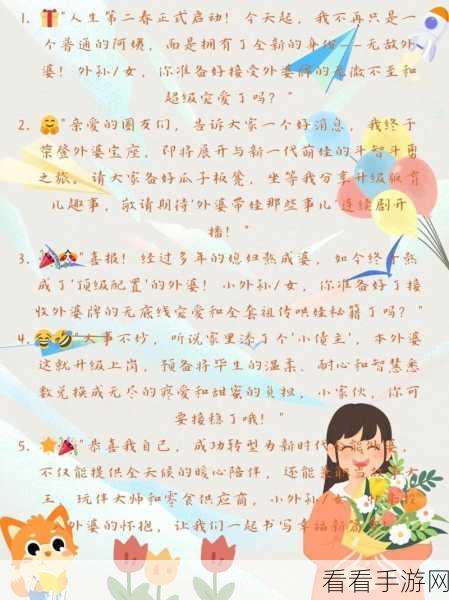 1. 🎁"人生第二春正式启动！今天起，我不再只是一
个普通的阿姨，而是拥有了全新的身份——无敌外
婆！外孙/女，你准备好接受外婆牌的无微不至和
超级宠爱了吗？"
2. 🤗"亲爱的圈友们，告诉大家一个好消息，我终于
荣登外婆宝座，即将展开与新一代萌娃的斗智斗勇
之旅。请大家备好瓜子板凳，坐等我分享升级版育
儿趣事，敬请期待'外婆带娃那些事儿'连续剧开
播！"
3. 🎉🎊"喜报！经过多年的媳妇熬成婆，如今终于熬
成了'顶级配置'的外婆！小外孙/女，你准备好了接
收外婆牌的无底线宠爱和全套祖传哄娃秘籍了吗？"
4. 😂🤣"大事不妙，听说家里添了个'小债主'，本外婆
这就升级上岗，预备将毕生的温柔、耐心和智慧悉
数兑换成无尽的疼爱和甜蜜的负担，小家伙，你可
要接稳了哦！"
5. ⭐🎉"恭喜我自己，成功转型为新时代 能外婆，
不仅能提供全天候的暖心陪伴，还能 大
王、玩伴大师和零食供应商，小外孙/女
外婆的怀抱，让我们一起书写幸福新篇
看看手游网